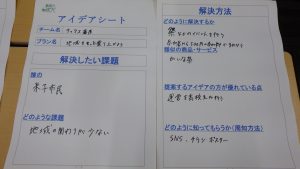 アイデアシート
チーム名
プラン名
地域をもっと盛り上げよう
解決したい課題
誰の
米子市民
どのような課題
地域の関わりが少ない
解決方法
どのように解決するか
祭などのイベントを行う
類似の商品・サービス
がいな祭
提案するアイデアの方が優れている点
運営を高校生が行う
どのように知ってもらうか(周知方法)
SNS・チラシ ポスター